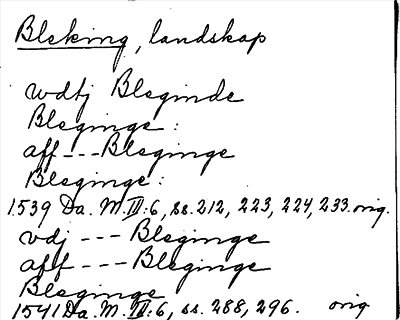 Bleking, landskap
wdtj Bleginde
Bleginge:
aff --- Bleginge
Bleginge:
1539 Da. M. III:6, ss. 212, 223, 224, 233. orig.
vdj --- Bleginge
aff --- Bleginge
Bleginge
1541 Da. M. III:6, ss. 288, 296. orig